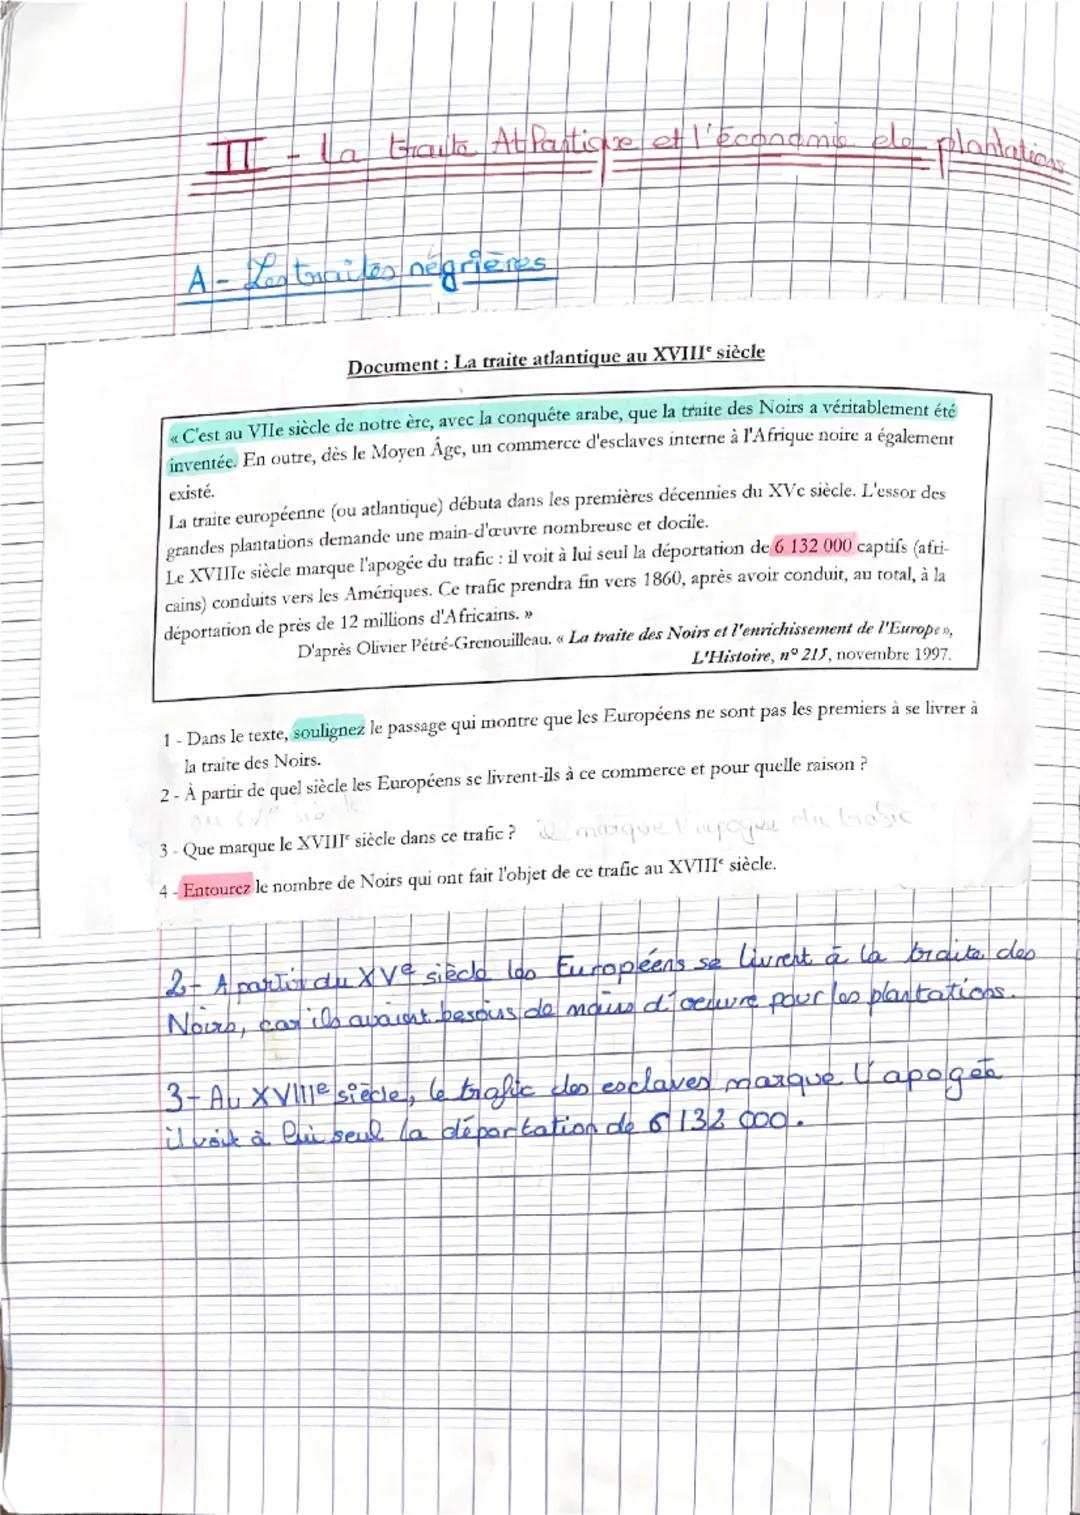 II - La traite Atlantique et l'économie de plantations
A - Les traites négrières
Document : La traite atlantique au XVIIIe siècle
« C'est au VIIe siècle de notre ère, avec la conquête arabe, que la traite des Noirs a véritablement été
inventée. En outre, dès le Moyen Âge, un commerce d'esclaves interne à l'Afrique noire a également
existé.
La traite européenne (ou atlantique) débuta dans les premières décennies du XVe siècle. L'essor des
grandes plantations demande une main-d'œuvre nombreuse et docile.
Le XVIIIe siècle marque l'apogée du trafic : il voit à lui seul la déportation de 6 132 000 captifs (afri-
cains) conduits vers les Amériques. Ce trafic prendra fin vers 1860, après avoir conduit, au total, à la
déportation de près de 12 millions d'Africains. »
D'après Olivier Pétré-Grenouilleau. « La traite des Noirs et l'enrichissement de l'Europe »,
L'Histoire, n° 215, novembre 1997.
1 - Dans le texte, soulignez le passage qui montre que les Européens ne sont pas les premiers à se livrer à
la traite des Noirs.
2 - À partir de quel siècle les Européens se livrent-ils à ce commerce et pour quelle raison ?
au XVe siècle
3 - Que marque le XVIIIe siècle dans ce trafic ? il marque l'apogée du trafic
4 - Entourez le nombre de Noirs qui ont fait l'objet de ce trafic au XVIIIe siècle.
2 - A partir du XVe siècle les Européens se livrent à la traite des
Noirs, car ils avaient besoins de mains d'oeuvre pour les plantations.
3 - Au XVIIIe siècle, le trafic des esclaves marque l'apogée
il voit à lui seul la déportation de 6 132 000.